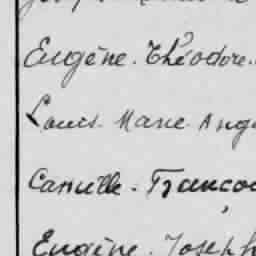 Eugène. Théodore.
Louis. Marie. Ang
Camille. Françoi
Eugène. Joseph